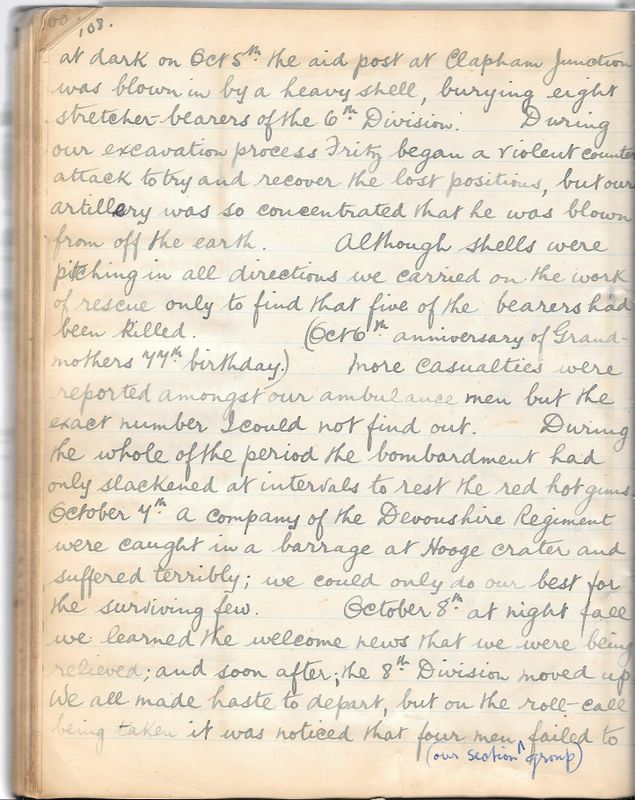 108.
at dark on Oct 5th the aid post at Clapham Junction
was blown in by a heavy shell, burying eight
stretcher-bearers of the 6th Division. During
our excavation process Fritz began a violent counter
attack to try and recover the lost positions, but our
artillery was so concentrated that he was blown
from off the earth. Although shells were
pitching in all directions we carried on the work
of rescue only to find that five of the bearers had
been killed. (Oct 6th anniversary of Grand-
mothers 77th birthday.) More casualties were
reported amongst our ambulance men but the
exact number I could not find out. During
the whole of the period the bombardment had
only slackened at intervals to rest the red hot guns.
October 7th a company of the Devonshire Regiment
were caught in a barrage at Hooge crater and
suffered terribly; we could only do our best for
the surviving few. October 8th at night fall
we learned the welcome news that we were being
relieved; and soon after; the 8th Division moved up
We all made haste to depart, but on the roll-call
being taken it was noticed that four men, failed to
(our section group)